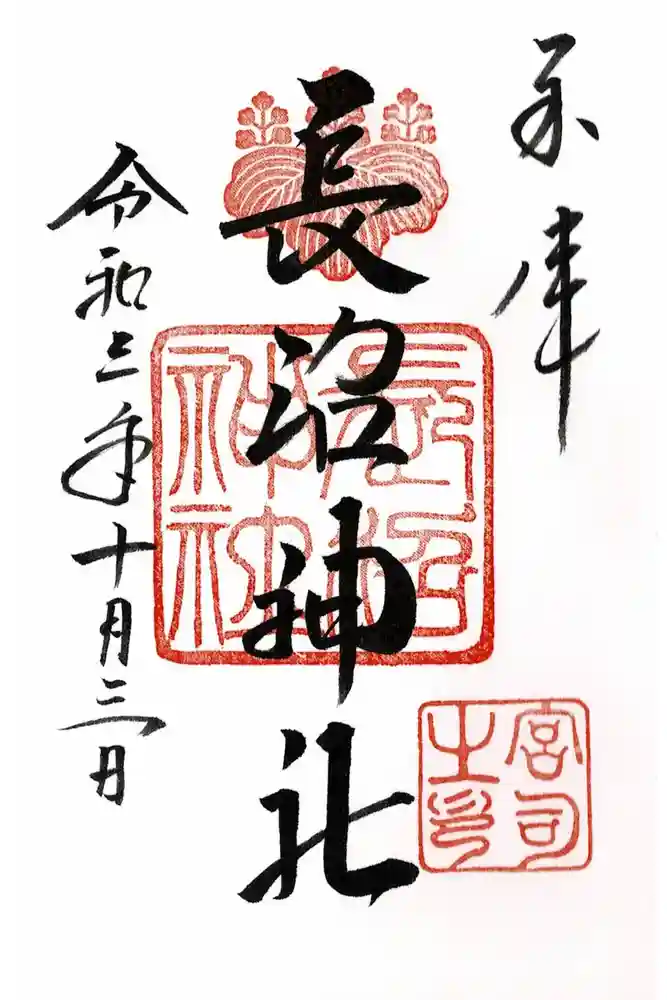 奉拝
長沼神社
令和三年十月三日
長沼神社
宮司之印